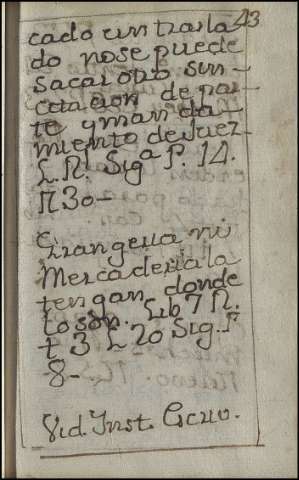 43
cado un trasla
do no se puede
sacar otro sin
citacion de par
te y mandа
miento de Juez.
L. R.l Sig.a P. 14.
n 30-
Grangeria ni
Mercaderia la
tengan donde
lo son. Lib 7 R.
t 3. L 20 Sig. P
8-
Vid. Inst. Escriv.